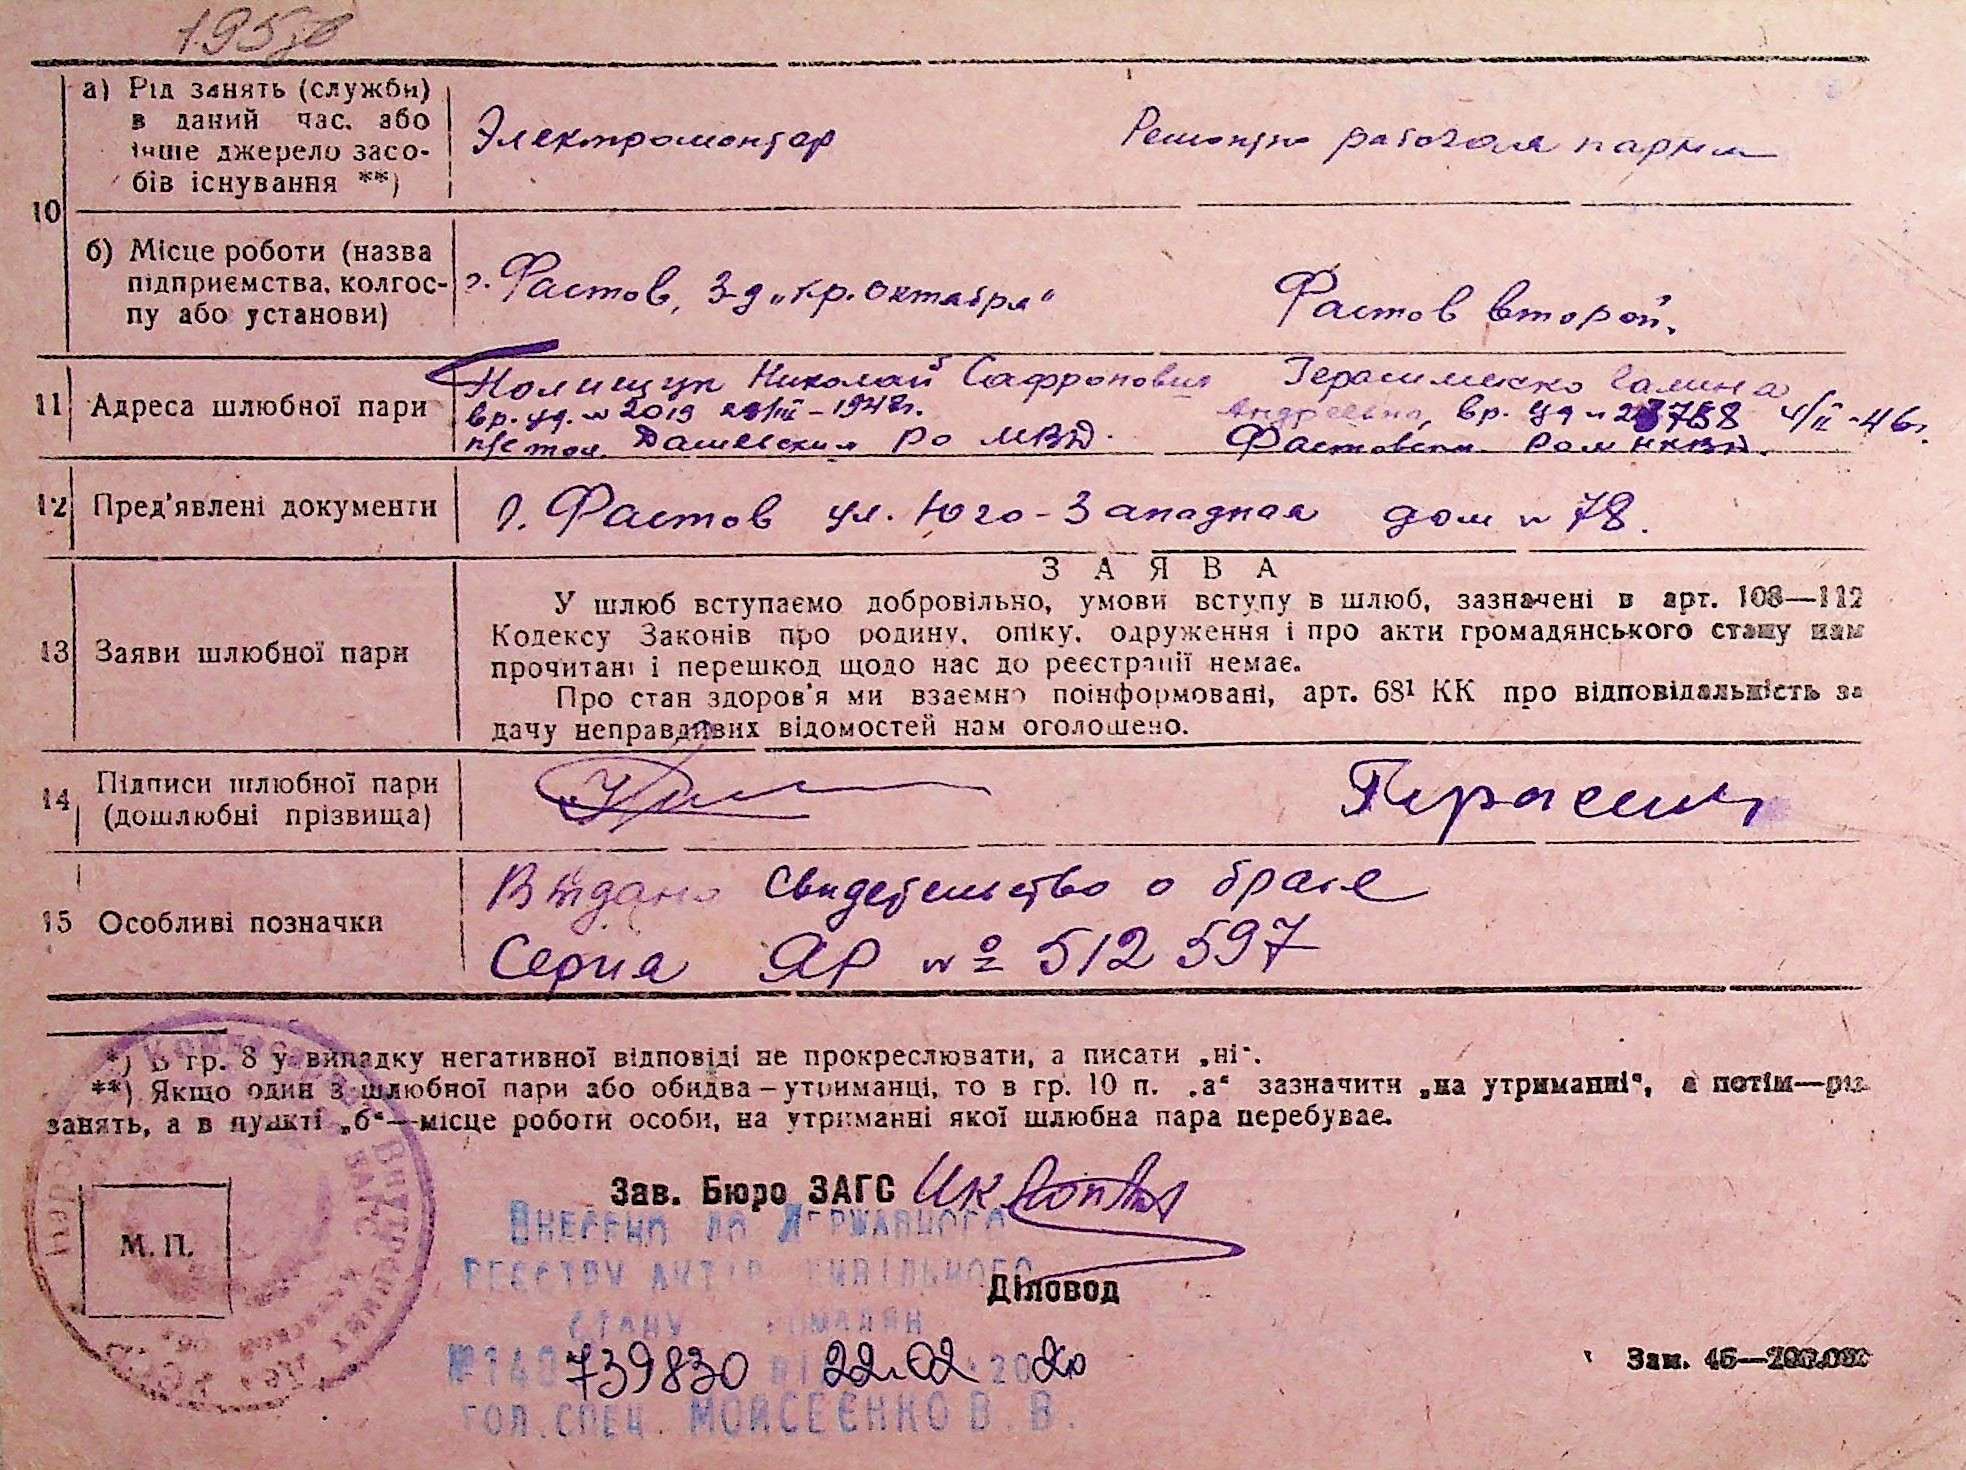 195
а) Рід занять (служби) в даний час, або інше джерело засобів існування **)
Электромонтер
Ремонтно рабочая
10
б) Місце роботи (назва підприємства, колгоспу або установи)
г. Фастов, з-д „Кр. Октября"
Фастов второй.
11 Адреса шлюбної пари
Полищук Николай Сафронович
вр. уд. № 2019 1948г.
Дашевским РО МВД.
Герасименко Галина
Андреевна, вр. уд № 4/II-46г.
Фастовским НКВД.
12 Пред'явлені документи
г. Фастов ул. Юго-Западная дом № 78.
13 Заяви шлюбної пари
ЗАЯВА
У шлюб вступаємо добровільно, умови вступу в шлюб, зазначені в арт. 108—112
Кодексу Законів про родину, опіку, одруження і про акти громадянського стану нам
прочитані і перешкод щодо нас до реєстрації немає.
Про стан здоров'я ми взаємно поінформовані, арт. 68¹ КК про відповідальність за
дачу неправдивих відомостей нам оголошено.
14 Підписи шлюбної пари (дошлюбні прізвища)
Герасим
15 Особливі позначки
Выдано Свидетельство о браке
Серия ЯР № 512597
*) В гр. 8 у випадку негативної відповіді не прокреслювати, а писати „ні".
**) Якщо один з шлюбної пари або обидва—утриманці, то в гр. 10 п. „а" зазначити „на утриманні", а потім—рід
занять, а в пункті „б"—місце роботи особи, на утриманні якої шлюбна пара перебуває.
Зав. Бюро ЗАГС
М. П.
Внесено до Державного
реєстру актів цивільного
Діловод
стану громадян
№ 140 739830 від 22.02 2020
Зам. 46—200.000
гол. спец. Мойсеєнко В. В.